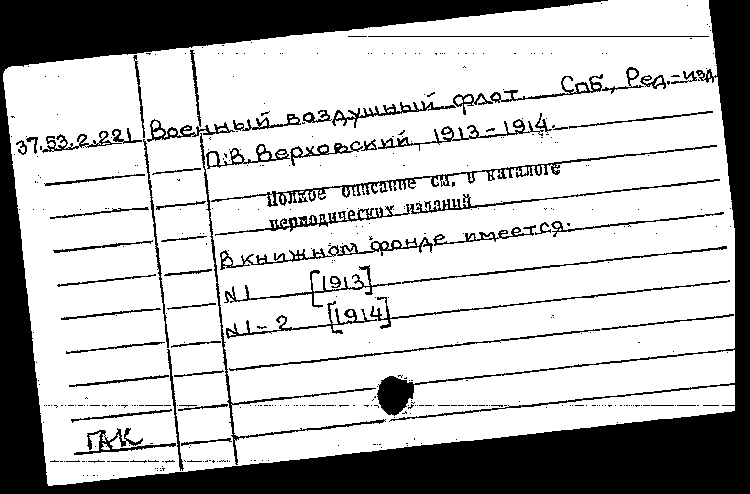 37.53.2.221 Военный воздушный флот. СПБ., Ред.-изд.
П.В.Верховский, 1913-1914.
Полное описание см. в каталоге
периодических изданий
В книжном фонде имеется:
N1 [1913]
N1-2 [1914]
ГАК